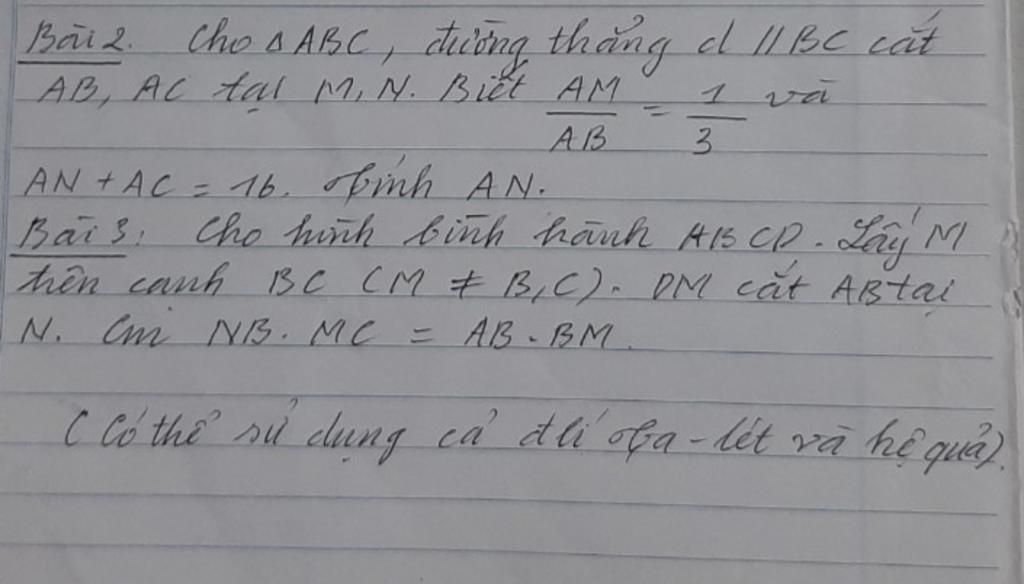 Bài 2. Cho △ABC, đường thẳng d // BC cắt
AB, AC tại M, N. Biết AM/AB = 1/3 và
AN + AC = 16. Tính AN.
Bài 3: Cho hình bình hành ABCD. Lấy M
trên cạnh BC (M ≠ B, C). DM cắt AB tại
N. Cm NB. MC = AB. BM.
(Có thể sử dụng cả đlí Ta-lét và hệ quả).